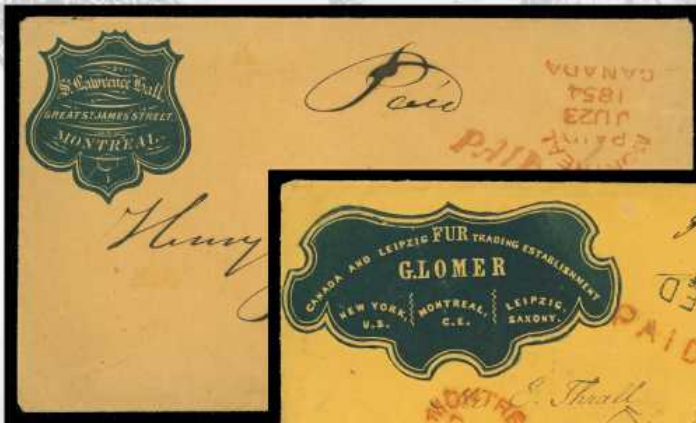 St. Lawrence Hall,
GREAT ST. JAMES STREET,
MONTREAL.
Paid
CANADA
1854
JU 23
PAID
MONTREAL
PAID
Henry
CANADA AND LEIPZIG FUR TRADING ESTABLISHMENT
G. LOMER
NEW YORK, U.S.
MONTREAL, C.E.
LEIPZIG, SAXONY.
ED
PAID
MONTRE
E. Thrall